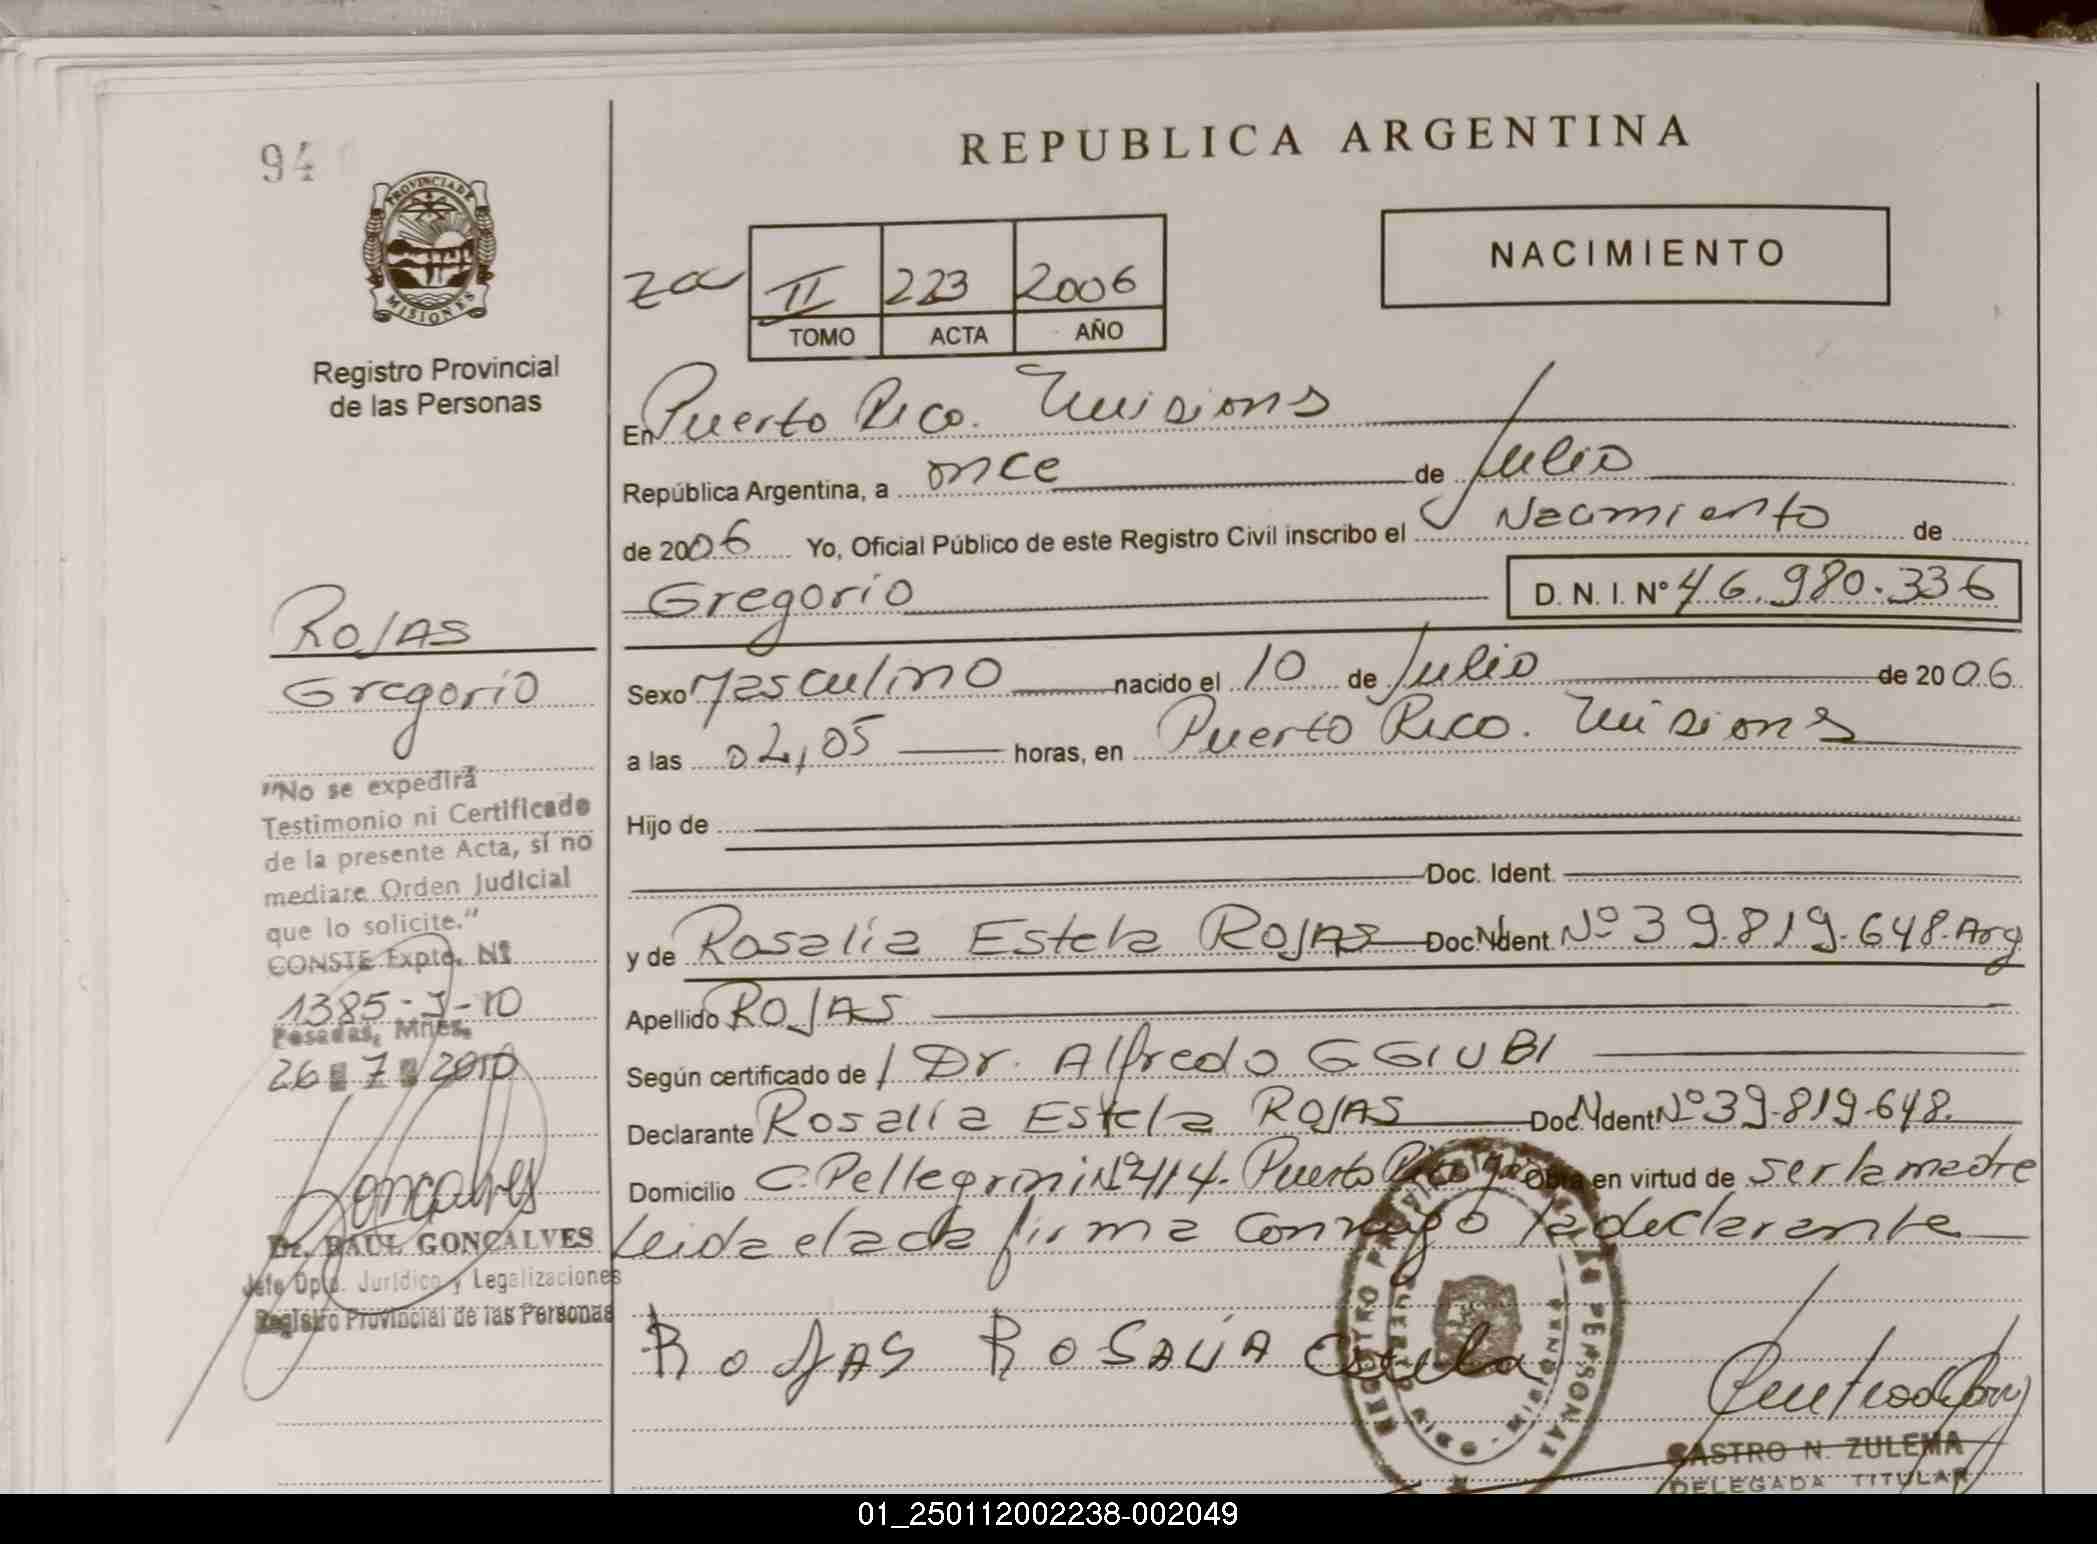 94
PROVINCIA DE
MISIONES
Registro Provincial
de las Personas
REPUBLICA ARGENTINA
NACIMIENTO
II 223 2006
TOMO ACTA AÑO
En Puerto Rico. Misiones
República Argentina, a once de Julio
de 2006 Yo, Oficial Público de este Registro Civil inscribo el Nacimiento de
Gregorio D. N. I. Nº 46.980.336
Sexo Masculino nacido el 10 de Julio de 2006
a las 02,05 horas, en Puerto Rico. Misiones
Hijo de
Doc. Ident.
y de Rosalía Estela ROJAS Doc. Ident. Nº 39.819.648. Arg
Apellido ROJAS
Según certificado de / Dr. Alfredo G GIUBI
Declarante Rosalía Estela ROJAS Doc. Ident. Nº 39.819.648.
Domicilio C. Pellegrini Nº 414. Puerto Rico Obra en virtud de ser la madre
Leida el acta firma conmigo la declarante
ROJAS ROSALÍA Estela
CASTRO N. ZULEMA
DELEGADA TITULAR
REGISTRO PROVINCIAL DE LAS PERSONAS
ROJAS
Gregorio
"No se expedirá
Testimonio ni Certificado
de la presente Acta, sí no
mediare Orden Judicial
que lo solicite."
CONSTE Expte. Nº
1385-J-10
Posadas, Mnes,
26 7 2010
Goncalves
Dr. RAUL GONCALVES
Jefe Dpto. Jurídico y Legalizaciones
Registro Provincial de las Personas
01_250112002238-002049